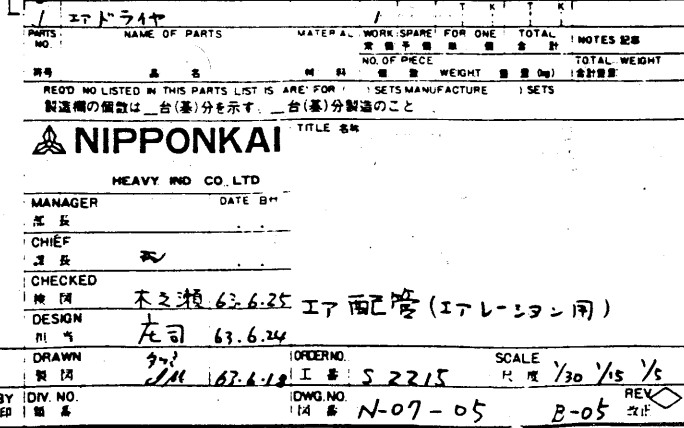 1 エアドライヤ 1
T K T K
PARTS NO. NAME OF PARTS MATERIAL WORK SPARE FOR ONE TOTAL NOTES 記事
常備 予備 一個 合計
NO. OF PIECE TOTAL WEIGHT
符号 品名 材料 個数 WEIGHT 重量 (kg) 合計重量
REQ'D NO LISTED IN THIS PARTS LIST IS ARE FOR ( ) SETS MANUFACTURE ( ) SETS
製造欄の個数は __台(基)分を示す. __台(基)分製造のこと
NIPPONKAI TITLE 名称
HEAVY IND CO., LTD
MANAGER DATE 日付
部長 . .
CHIEF
課長 . .
CHECKED
検図 木之瀬 63.6.25 エア配管(エアレーション用)
DESIGN
担当 庄司 63.6.24
DRAWN ORDER NO. SCALE
製図 63.6.18 工番 S 2215 尺度 1/30 1/15 1/5
BY DIV. NO. DWG. NO. REV.
印 図番 N-07-05 B-05 改正